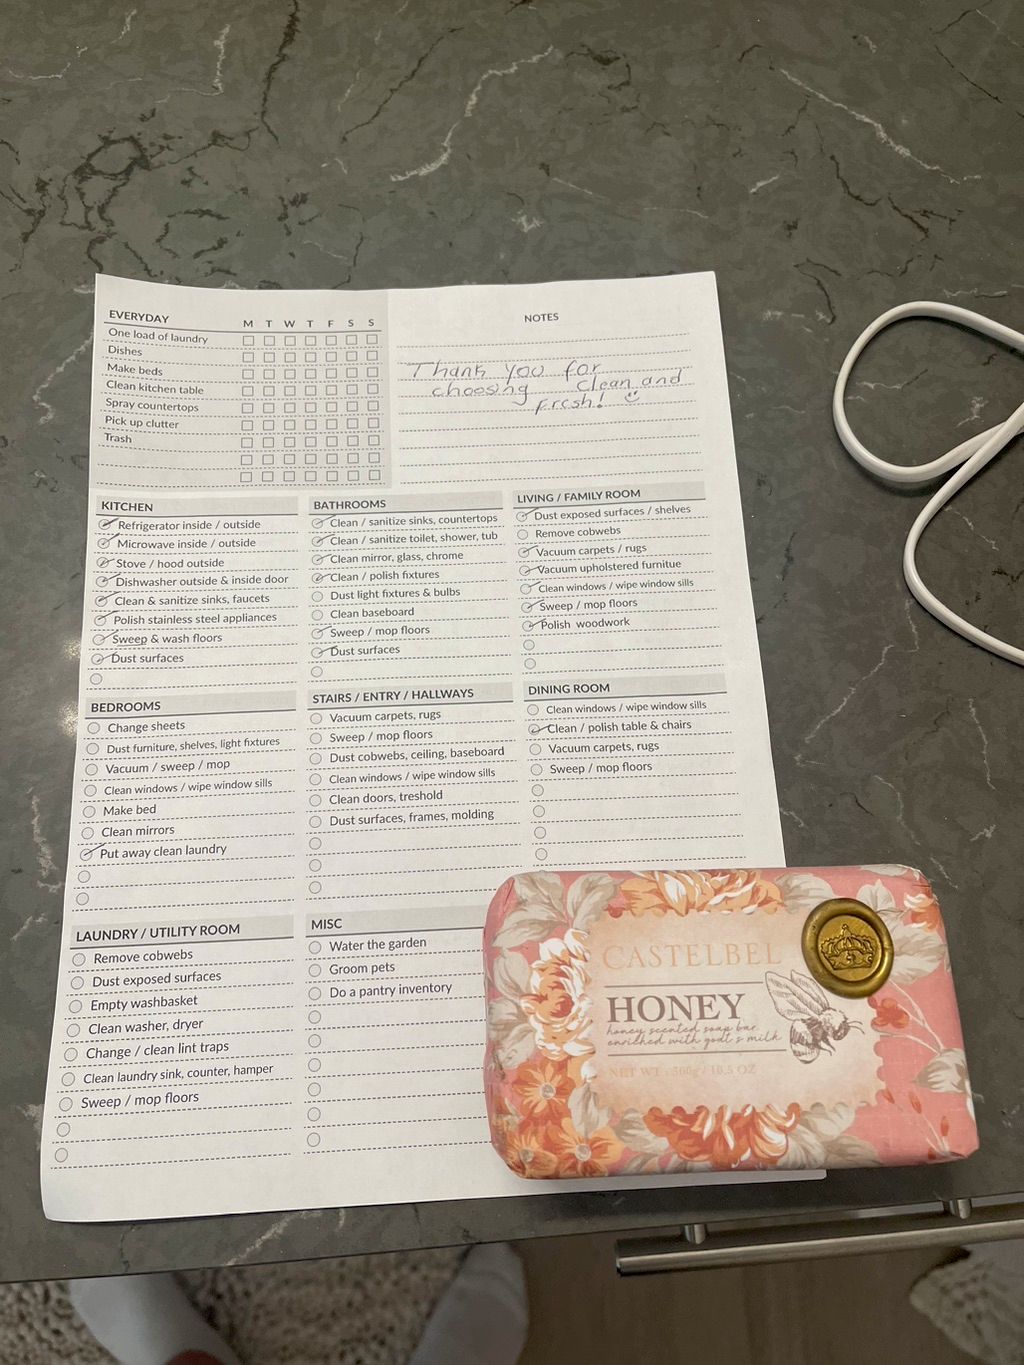 EVERYDAY M T W T F S S
One load of laundry
Dishes
Make beds
Clean kitchen table
Spray countertops
Pick up clutter
Trash
NOTES
Thank you for
choosing Clean and
Fresh!
KITCHEN
Refrigerator inside / outside
Microwave inside / outside
Stove / hood outside
Dishwasher outside & inside door
Clean & sanitize sinks, faucets
Polish stainless steel appliances
Sweep & wash floors
Dust surfaces
BATHROOMS
Clean / sanitize sinks, countertops
Clean / sanitize toilet, shower, tub
Clean mirror, glass, chrome
Clean / polish fixtures
Dust light fixtures & bulbs
Clean baseboard
Sweep / mop floors
Dust surfaces
LIVING / FAMILY ROOM
Dust exposed surfaces / shelves
Remove cobwebs
Vacuum carpets / rugs
Vacuum upholstered furnitue
Clean windows / wipe window sills
Sweep / mop floors
Polish woodwork
BEDROOMS
Change sheets
Dust furniture, shelves, light fixtures
Vacuum / sweep / mop
Clean windows / wipe window sills
Make bed
Clean mirrors
Put away clean laundry
STAIRS / ENTRY / HALLWAYS
Vacuum carpets, rugs
Sweep / mop floors
Dust cobwebs, ceiling, baseboard
Clean windows / wipe window sills
Clean doors, treshold
Dust surfaces, frames, molding
DINING ROOM
Clean windows / wipe window sills
Clean / polish table & chairs
Vacuum carpets, rugs
Sweep / mop floors
LAUNDRY / UTILITY ROOM
Remove cobwebs
Dust exposed surfaces
Empty washbasket
Clean washer, dryer
Change / clean lint traps
Clean laundry sink, counter, hamper
Sweep / mop floors
MISC
Water the garden
Groom pets
Do a pantry inventory
CASTELBEL
HONEY
honey scented soap bar
enriched with goat's milk
NET WT. 300g / 10.5 OZ